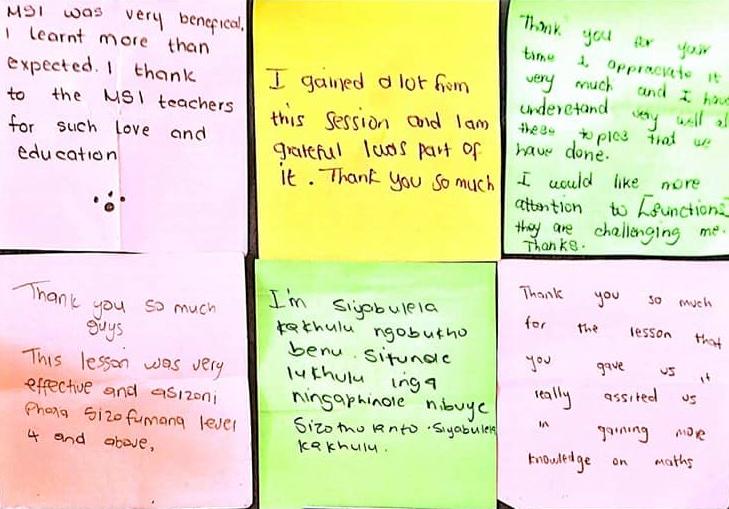 MSI was very benefical,
I learnt more than
expected. I thank
to the MSI teachers
for such love and
education
I gained a lot from
this session and I am
grateful I was part of
it. Thank you so much
Thank you for your
time I appreciate it
very much and I have
understand very well all
these topics that we
have done.
I would like more
attention to [functions]
they are challenging me.
Thanks.
Thank you so much
guys
This lesson was very
effective and asizoni
phana sizofumana level
4 and above,
I'm Siyabulela
kakhulu ngobukho
benu. Sifunde
lukhulu inga
ningaphinde nibuye
Sizothulanto. Siyabulela
kakhulu.
Thank you so much
for the lesson that
you gave us it
really assited us
in gaining more
knowledge on maths